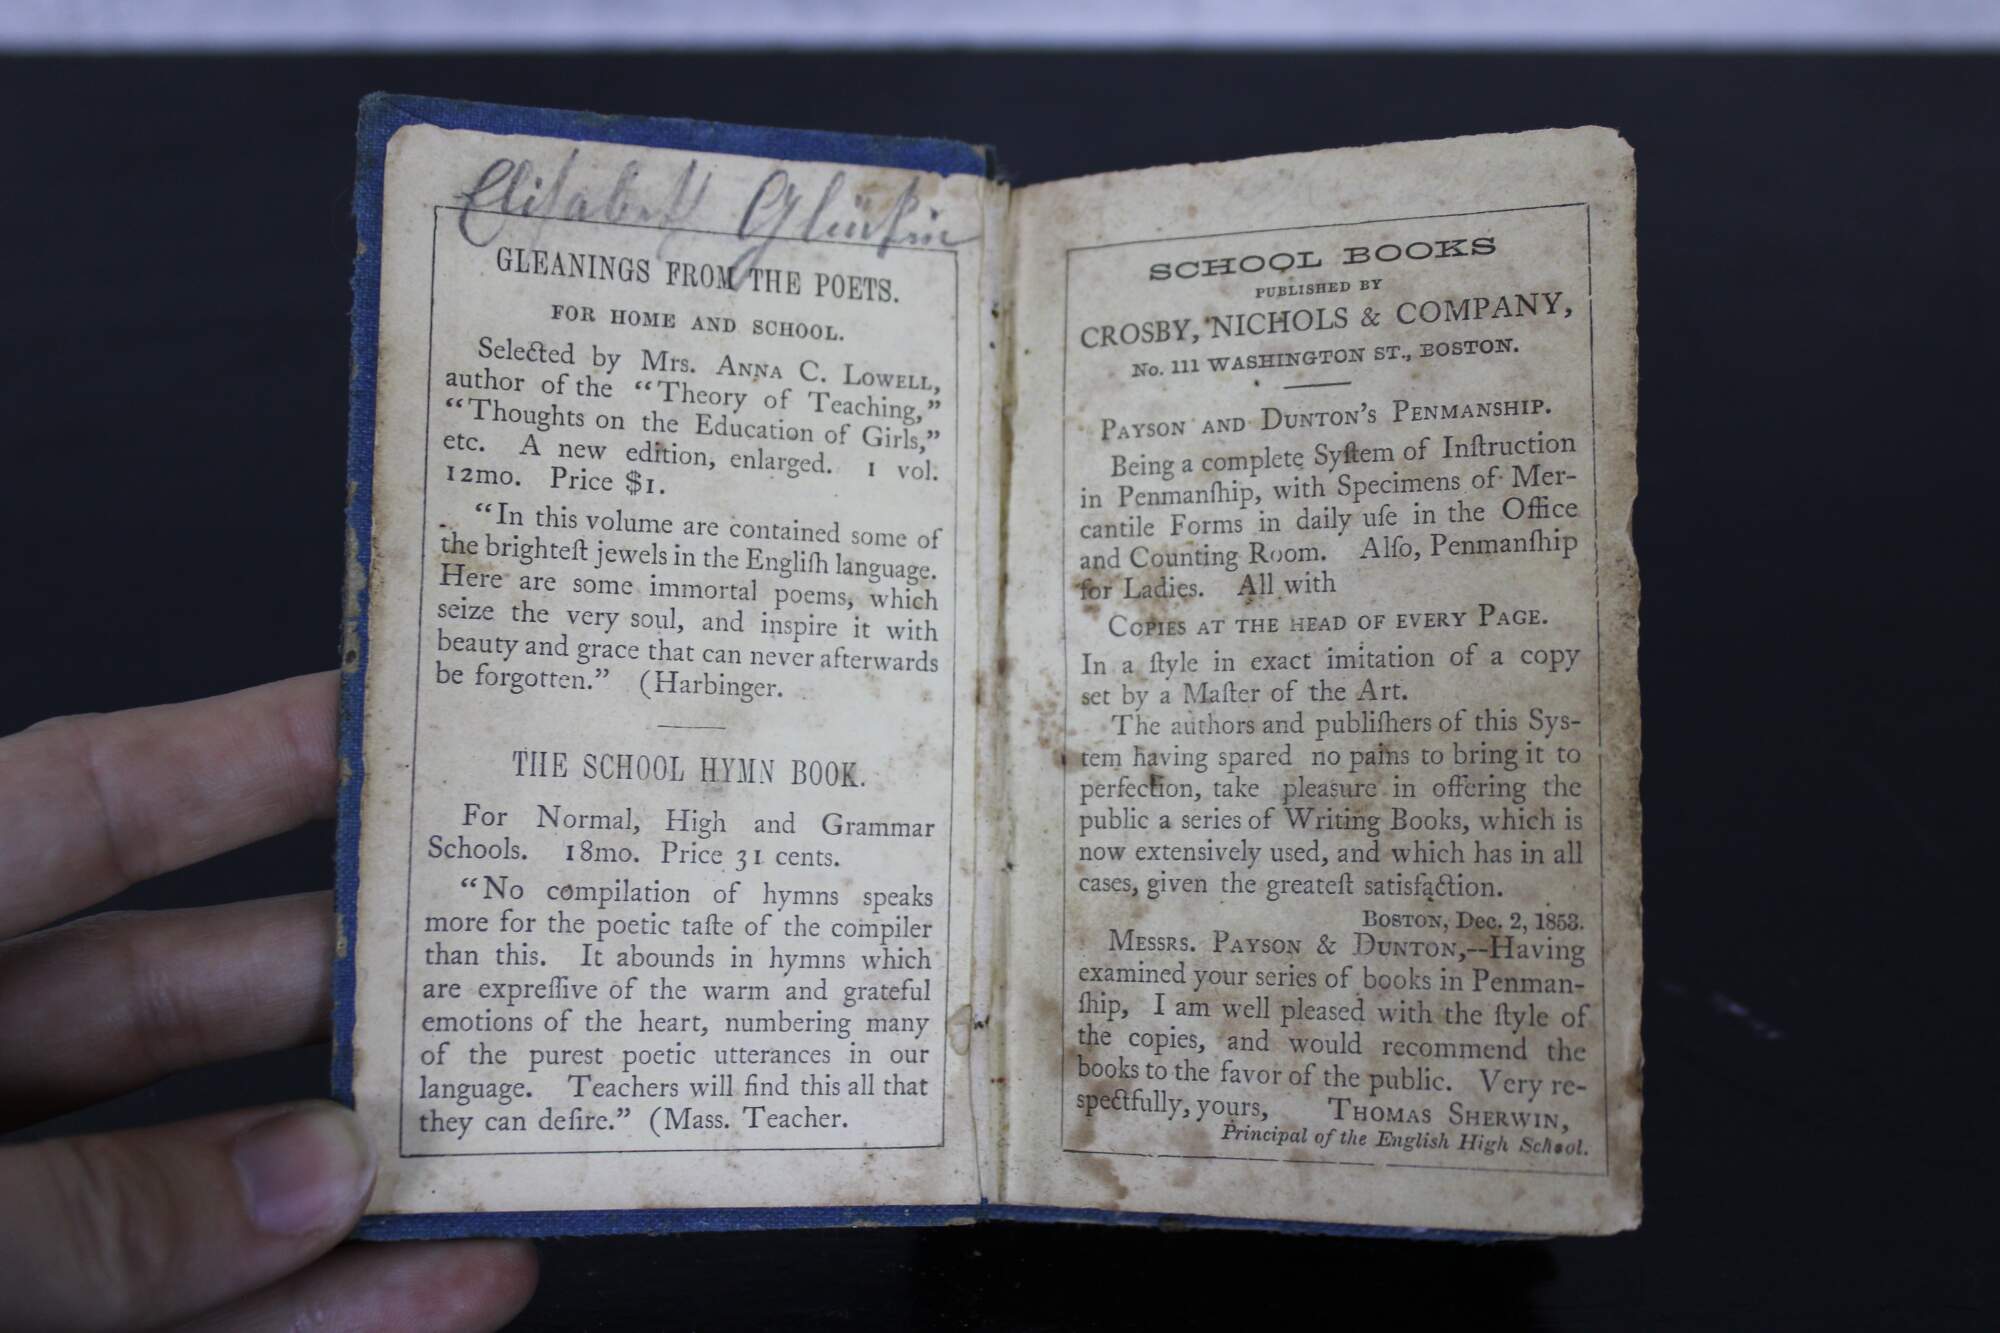 Elisabeth Glünkin
GLEANINGS FROM THE POETS.
FOR HOME AND SCHOOL.
Selected by Mrs. ANNA C. LOWELL,
author of the “Theory of Teaching,”
“Thoughts on the Education of Girls,”
etc. A new edition, enlarged. 1 vol.
12mo. Price $1.
“In this volume are contained some of
the brighteſt jewels in the Engliſh language.
Here are some immortal poems, which
seize the very soul, and inspire it with
beauty and grace that can never afterwards
be forgotten.” (Harbinger.
THE SCHOOL HYMN BOOK.
For Normal, High and Grammar
Schools. 18mo. Price 31 cents.
“No compilation of hymns speaks
more for the poetic taſte of the compiler
than this. It abounds in hymns which
are expreſſive of the warm and grateful
emotions of the heart, numbering many
of the purest poetic utterances in our
language. Teachers will find this all that
they can deſire.” (Mass. Teacher.
SCHOOL BOOKS
PUBLISHED BY
CROSBY, NICHOLS & COMPANY,
No. 111 WASHINGTON ST., BOSTON.
PAYSON AND DUNTON’S PENMANSHIP.
Being a complete Syſtem of Inſtruction
in Penmanſhip, with Specimens of Mer-
cantile Forms in daily uſe in the Office
and Counting Room. Alſo, Penmanſhip
for Ladies. All with
COPIES AT THE HEAD OF EVERY PAGE.
In a ſtyle in exact imitation of a copy
set by a Maſter of the Art.
The authors and publiſhers of this Sys-
tem having spared no pains to bring it to
perfection, take pleasure in offering the
public a series of Writing Books, which is
now extensively used, and which has in all
cases, given the greateſt satisfaction.
BOSTON, Dec. 2, 1853.
MESSRS. PAYSON & DUNTON,—Having
examined your series of books in Penman-
ſhip, I am well pleased with the ſtyle of
the copies, and would recommend the
books to the favor of the public. Very re-
spectfully, yours, THOMAS SHERWIN,
Principal of the English High School.